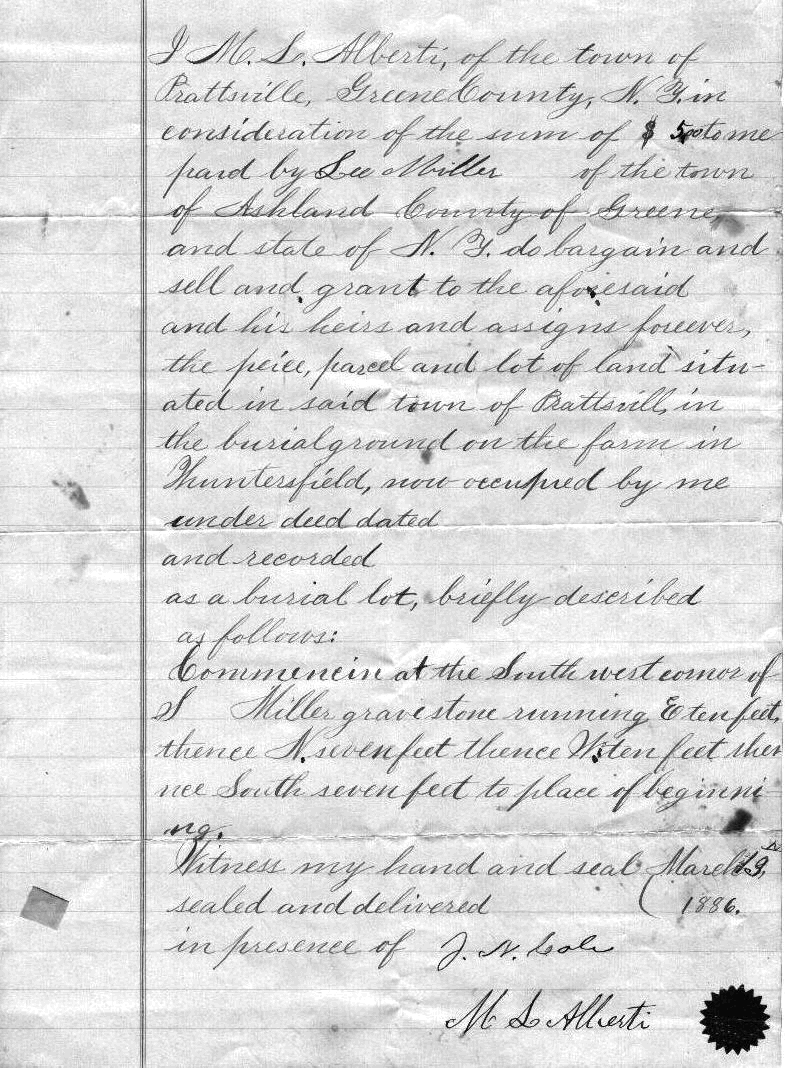 I M. L. Alberti, of the town of
Prattsville, Greene County, N. Y. in
consideration of the sum of $ 5.00 to me
paid by Lee Miller of the town
of Ashland County of Greene,
and state of N. Y. do bargain and
sell and grant to the aforesaid
and his heirs and assigns forever,
the peice, parcel and lot of land situ-
ated in said town of Prattsvill, in
the burial ground on the farm in
Huntersfield, now occupied by me
under deed dated
and recorded
as a burial lot, briefly described
as follows:
Commencin at the South west cornor of
S Miller grave stone running E ten feet,
thence N. seven feet thence W. ten feet ther
nce South seven feet to place of beginni-
ng.
Witness my hand and seal March 19,
sealed and delivered ( 1886.
in presence of J. N. Cole
M L Alberti